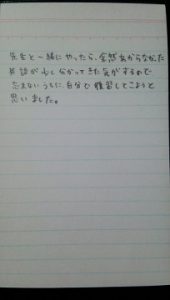 先生と一緒にやったら、全然分からなかった
英語が少し分かってきた気がするので
忘れないうちに自分で復習してこようと
思いました。